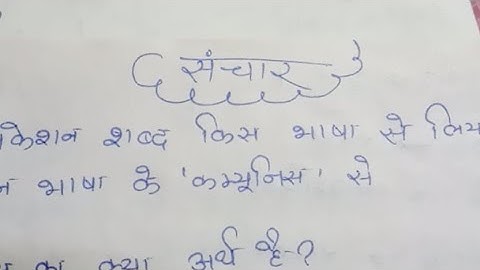 संचार
केशन शब्द किस भाषा से लिय
न भाषा के 'कम्यूनिस' से
का क्या अर्थ है-?